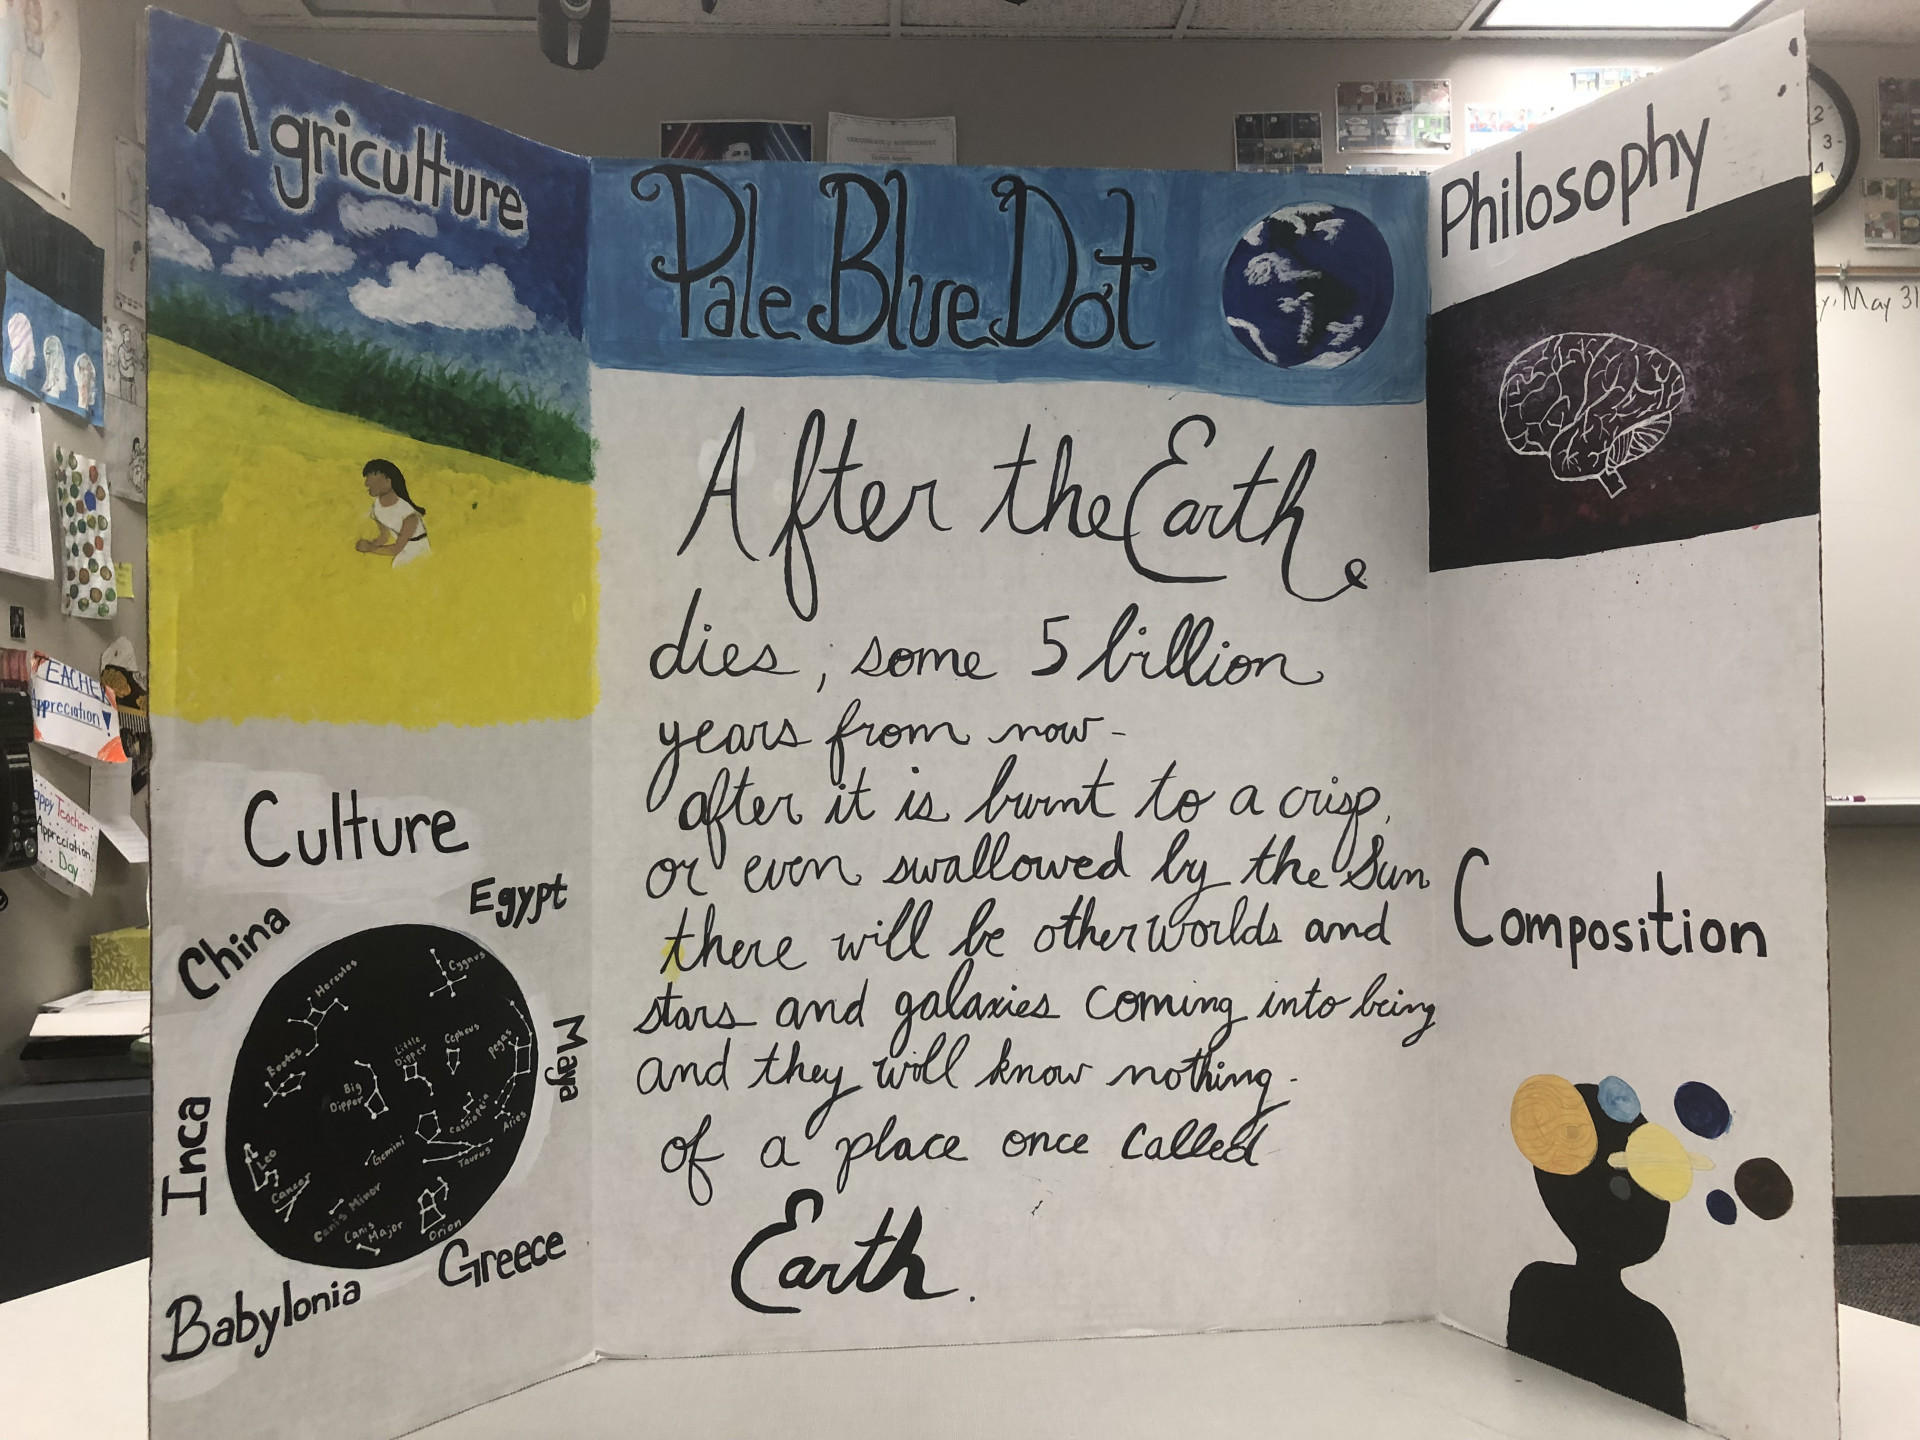 Agriculture
Pale Blue Dot
Philosophy
After the Earth
dies, some 5 billion
years from now -
after it is burnt to a crisp,
or even swallowed by the Sun
there will be other worlds and
stars and galaxies coming into being
and they will know nothing -
of a place once called
Earth.
Culture
Egypt
China
Maya
Inca
Greece
Babylonia
Hercules
Cygnus
Bootes
Little
Dipper
Cepheus
Big
Dipper
Cassiopeia
Aries
Gemini
Taurus
Leo
Cancer
Canis Minor
Canis
Major
Orion
Composition
TEACHER
Appreciation!
Happy Teacher
Appreciation
Day
2
3
4
May 31